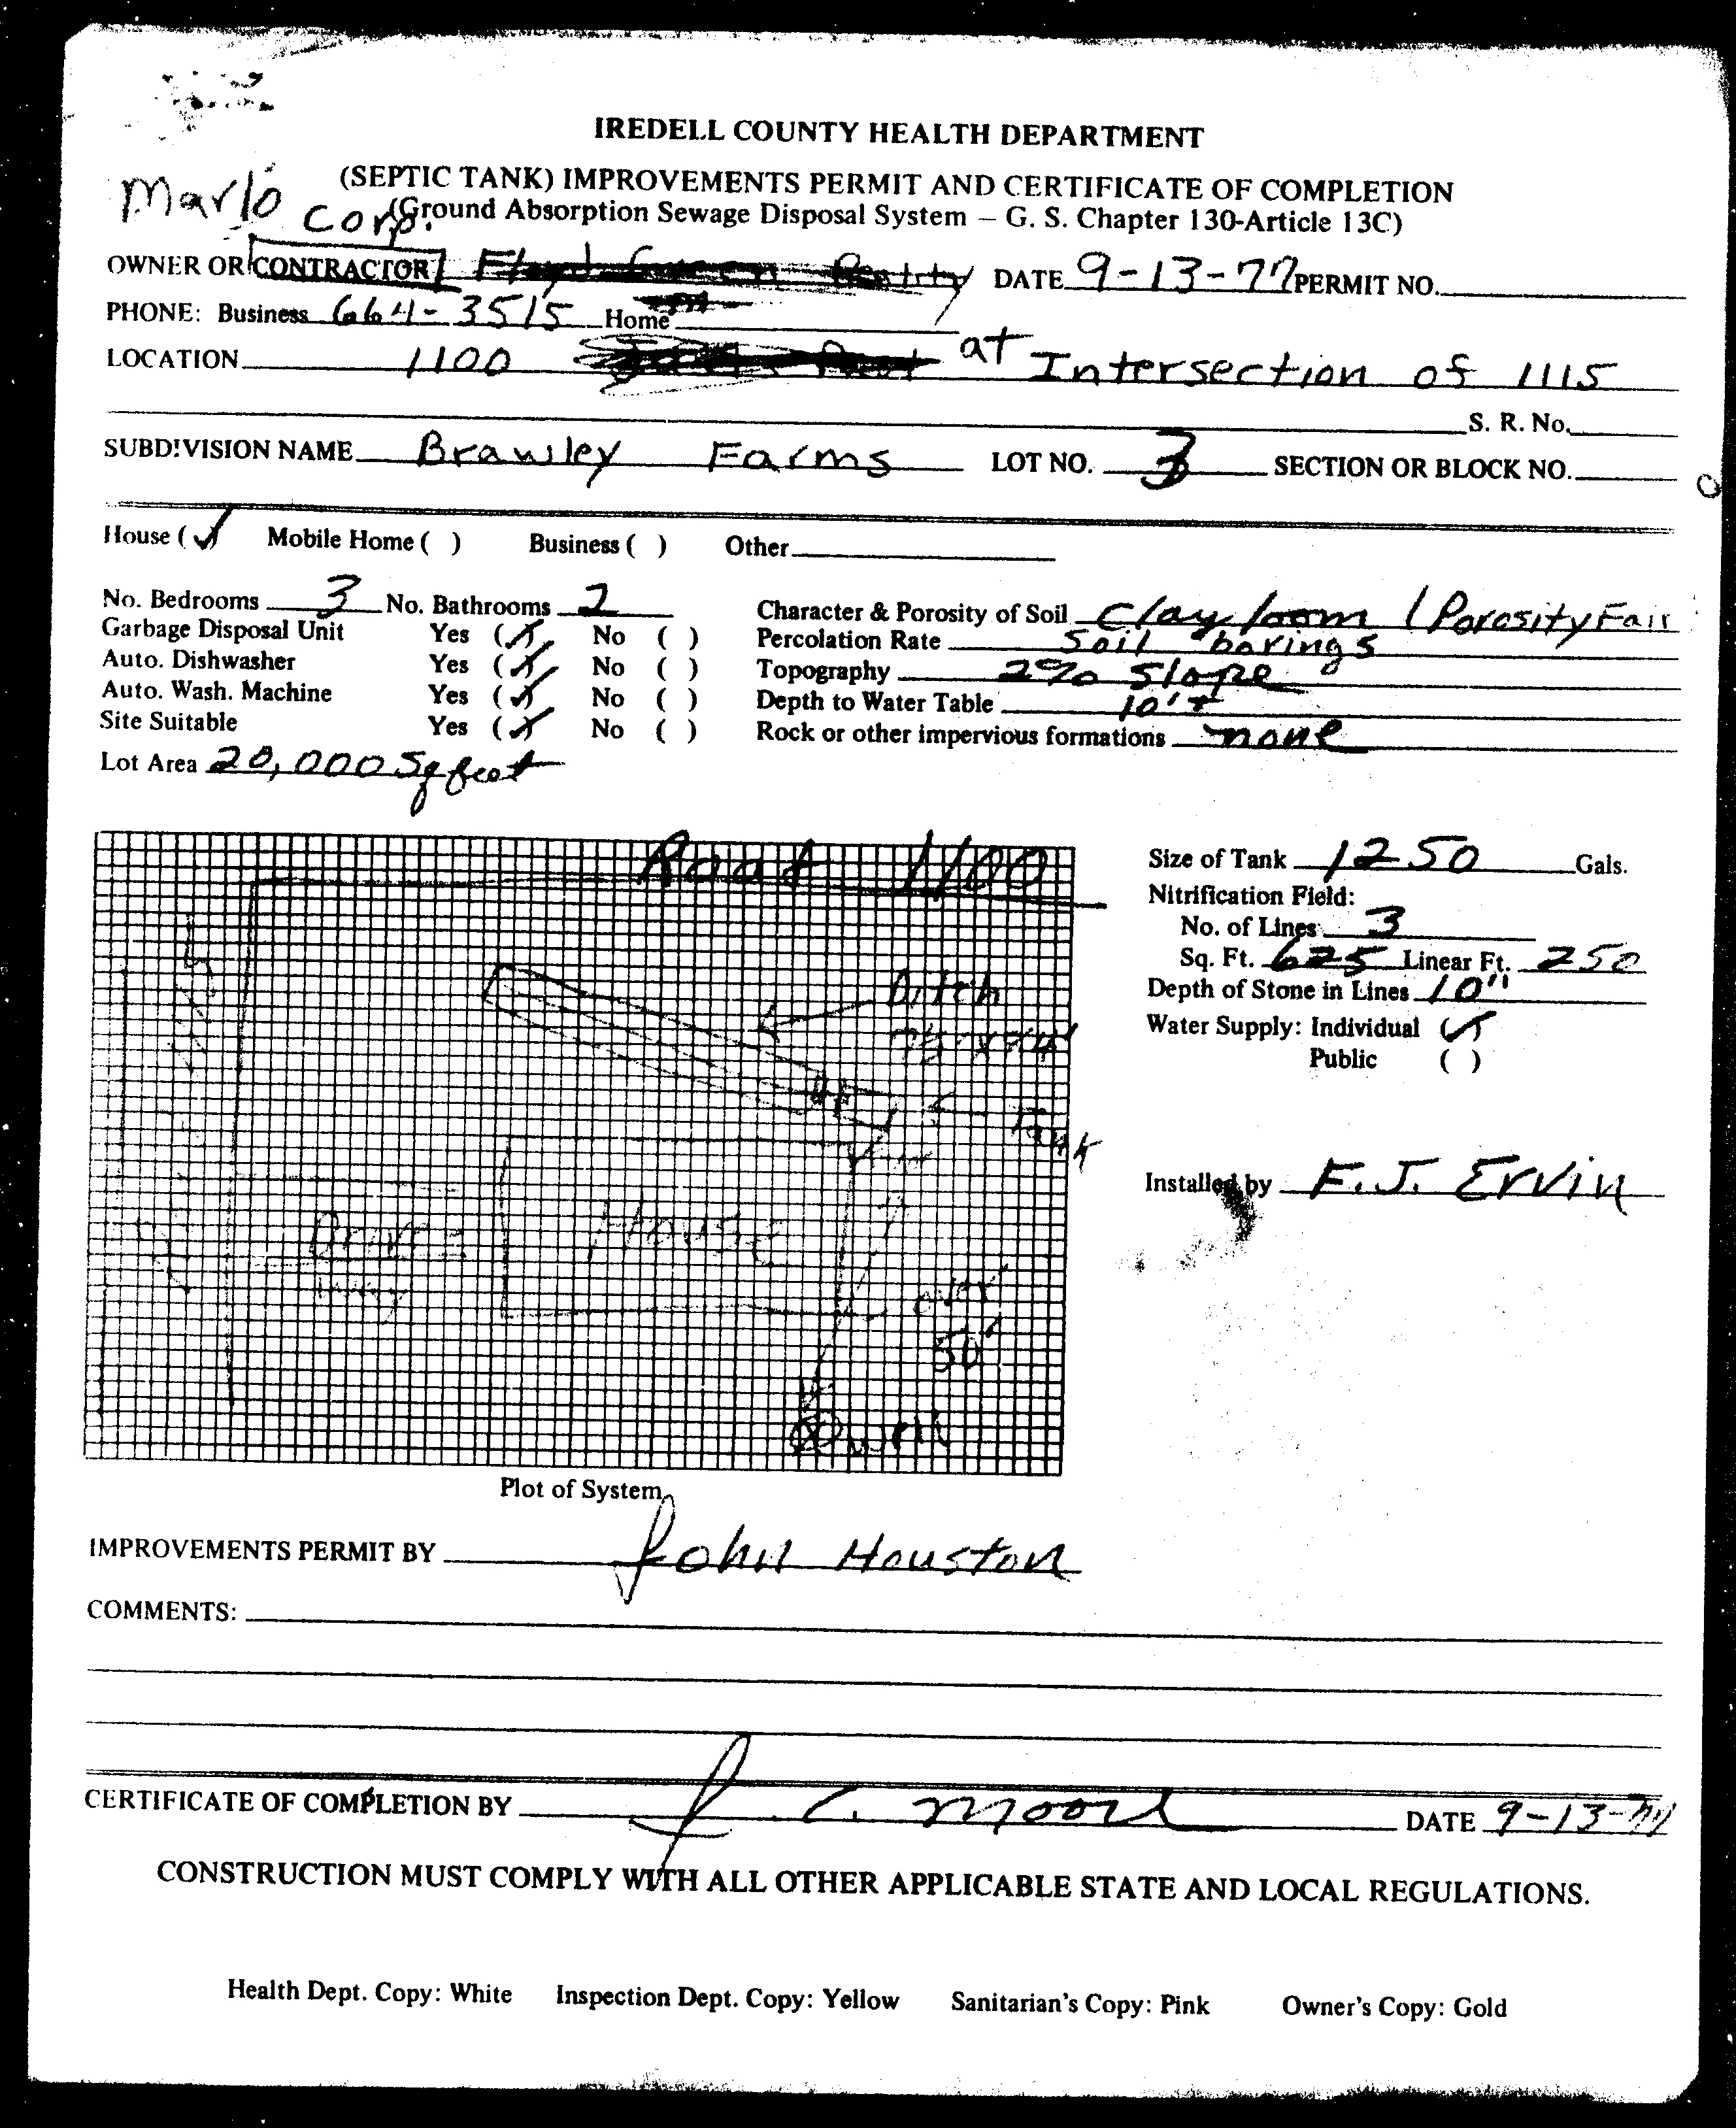 IREDELL COUNTY HEALTH DEPARTMENT
(SEPTIC TANK) IMPROVEMENTS PERMIT AND CERTIFICATE OF COMPLETION
Marlo Corp. (Ground Absorption Sewage Disposal System – G. S. Chapter 130-Article 13C)
OWNER OR CONTRACTOR DATE 9-13-77 PERMIT NO.
PHONE: Business 664-3515 Home
LOCATION 1100 at Intersection of 1115
S. R. No.
SUBDIVISION NAME Brawley Farms LOT NO. 3 SECTION OR BLOCK NO.
House (✓) Mobile Home ( ) Business ( ) Other
No. Bedrooms 3 No. Bathrooms 2
Garbage Disposal Unit Yes (✓) No ( )
Auto. Dishwasher Yes (✓) No ( )
Auto. Wash. Machine Yes (✓) No ( )
Site Suitable Yes (✓) No ( )
Lot Area 20,000 Sq feet
Character & Porosity of Soil Clay loom / Porosity Fair
Percolation Rate Soil borings
Topography 2% Slope
Depth to Water Table 10'+
Rock or other impervious formations none
Road 1100
Ditch
Tank
Drive way
House
over 50'
well
Plot of System
Size of Tank 1250 Gals.
Nitrification Field:
No. of Lines 3
Sq. Ft. 625 Linear Ft. 250
Depth of Stone in Lines 10"
Water Supply: Individual (✓)
Public ( )
Installed by F.J. Ervin
IMPROVEMENTS PERMIT BY John Houston
COMMENTS:
CERTIFICATE OF COMPLETION BY J. C. Moore DATE 9-13-77
CONSTRUCTION MUST COMPLY WITH ALL OTHER APPLICABLE STATE AND LOCAL REGULATIONS.
Health Dept. Copy: White Inspection Dept. Copy: Yellow Sanitarian's Copy: Pink Owner's Copy: Gold